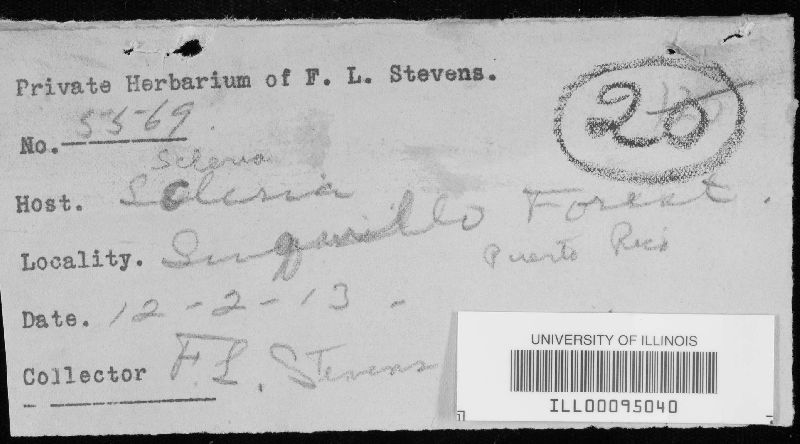 Private Herbarium of F. L. Stevens.
20
No. 5569
Scleria
Host.
Locality. Forest.
Puerto Rico
Date. 12-2-13-
Collector F. L. Stevens
UNIVERSITY OF ILLINOIS
ILL00095040